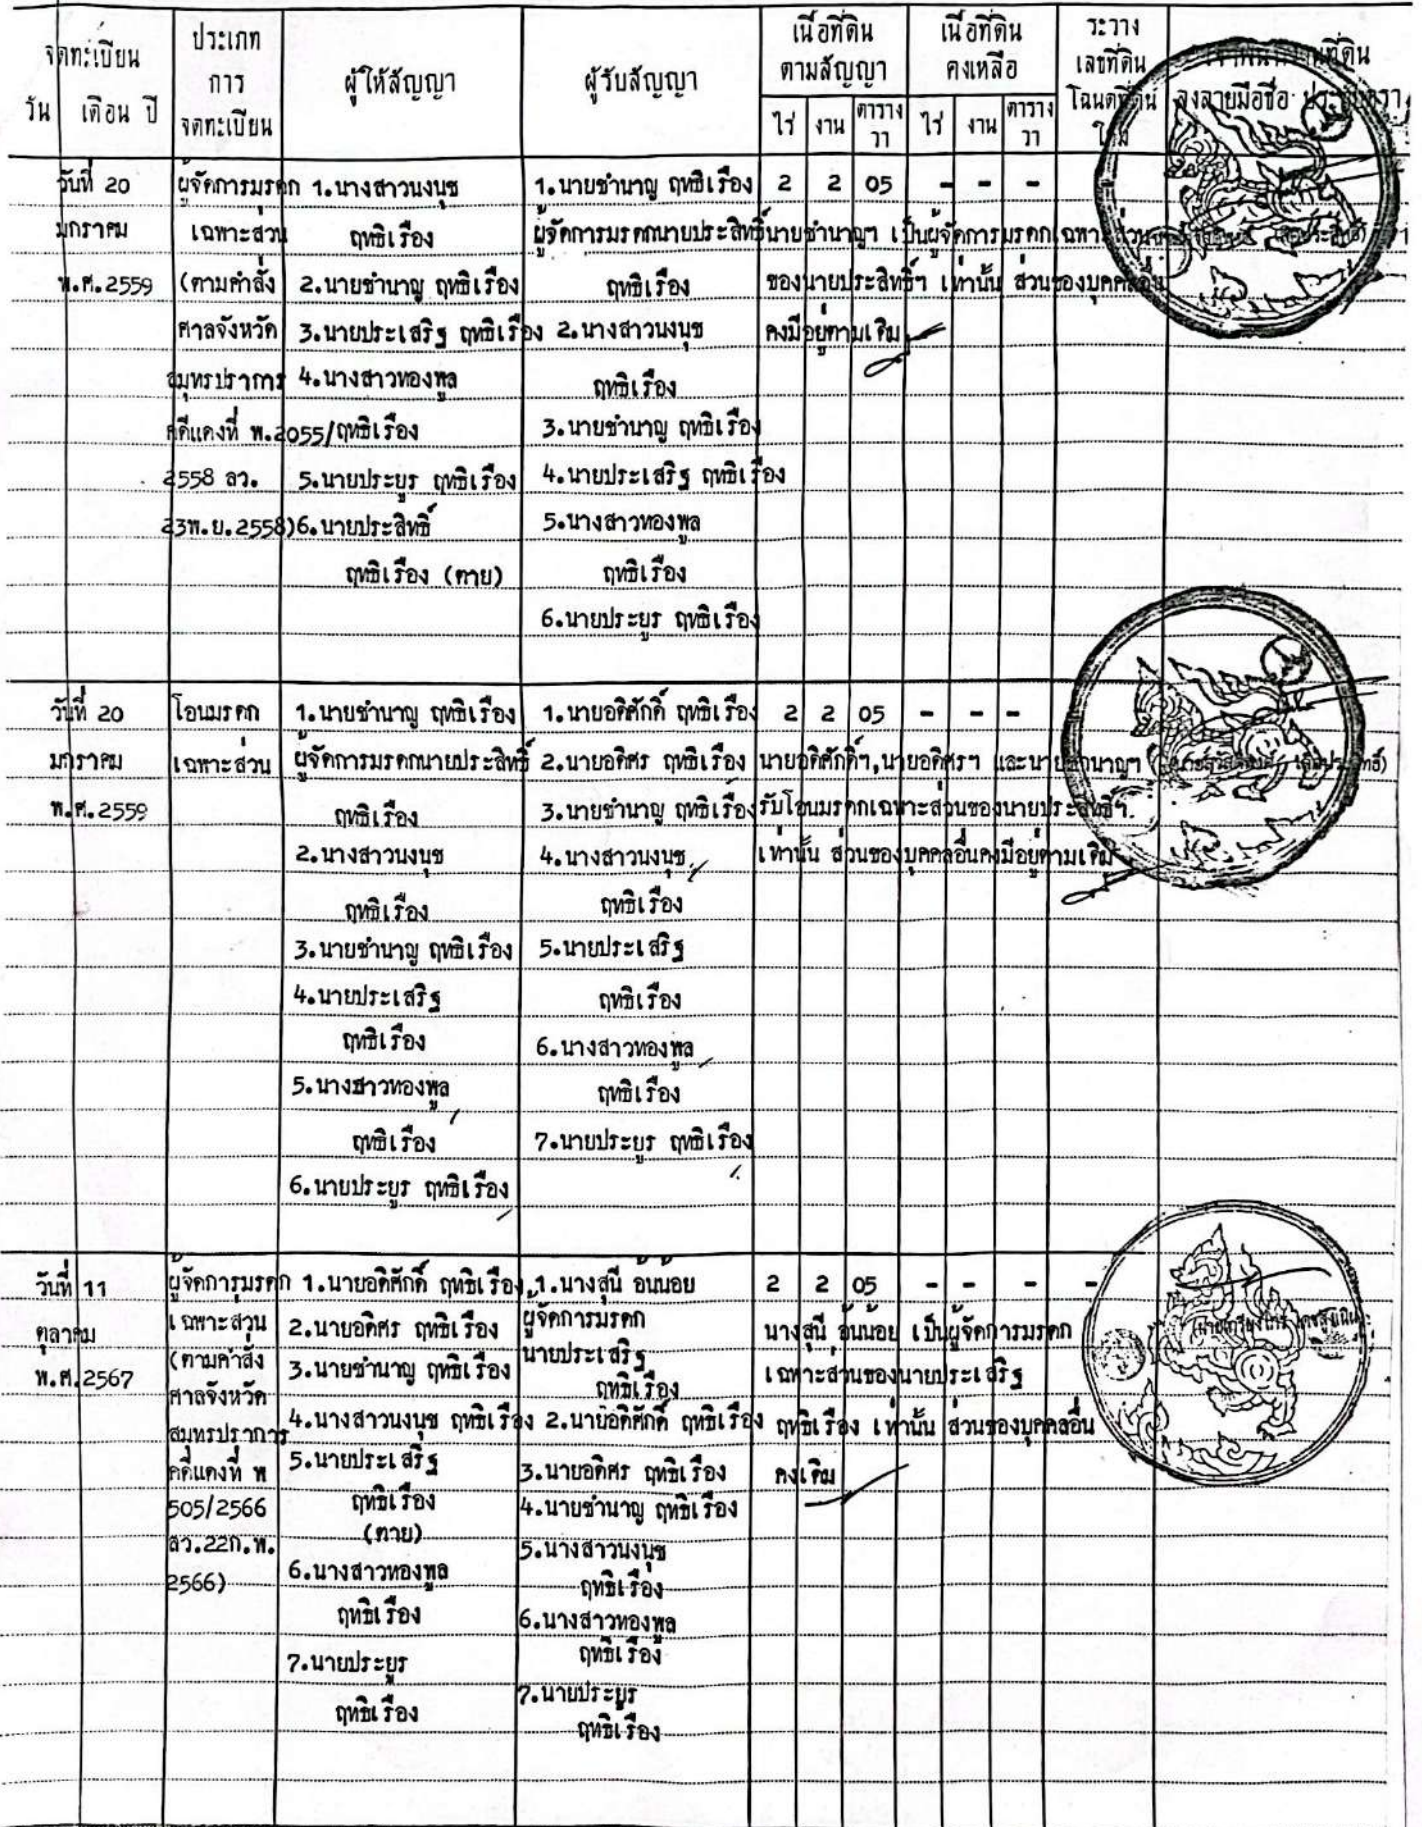 จดทะเบียน
วัน เดือน ปี
ประเภท
การ
จดทะเบียน
ผู้ให้สัญญา
ผู้รับสัญญา
เนื้อที่ดิน
ตามสัญญา
ไร่ งาน ตาราง
วา
เนื้อที่ดิน
คงเหลือ
ไร่ งาน ตาราง
วา
ระวาง
เลขที่ดิน
โฉนดที่ดิน
ใหม่
เจ้าพนักงานที่ดิน
ลงลายมือชื่อ ประทับตรา
วันที่ 20
มกราคม
พ.ศ.2559
ผู้จัดการมรดก
เฉพาะส่วน
(ตามคำสั่ง
ศาลจังหวัด
สมุทรปราการ
คดีแดงที่ พ.2055/
2558 ลว.
23พ.ย.2558)
1.นางสาวนงนุช
ฤทธิเรือง
2.นายชำนาญ ฤทธิเรือง
3.นายประเสริฐ ฤทธิเรือง
4.นางสาวทองพูล
ฤทธิเรือง
5.นายประยูร ฤทธิเรือง
6.นายประสิทธิ์
ฤทธิเรือง (ตาย)
1.นายชำนาญ ฤทธิเรือง
ผู้จัดการมรดกนายประสิทธิ์
ฤทธิเรือง
2.นางสาวนงนุช
ฤทธิเรือง
3.นายชำนาญ ฤทธิเรือง
4.นายประเสริฐ ฤทธิเรือง
5.นางสาวทองพูล
ฤทธิเรือง
6.นายประยูร ฤทธิเรือง
2 2 05 - - - -
นายชำนาญฯ เป็นผู้จัดการมรดกเฉพาะส่วน
ของนายประสิทธิ์ฯ เท่านั้น ส่วนของบุคคลอื่น
คงมีอยู่ตามเดิม
วันที่ 20
มกราคม
พ.ศ.2559
โอนมรดก
เฉพาะส่วน
1.นายชำนาญ ฤทธิเรือง
ผู้จัดการมรดกนายประสิทธิ์
ฤทธิเรือง
2.นางสาวนงนุช
ฤทธิเรือง
3.นายชำนาญ ฤทธิเรือง
4.นายประเสริฐ
ฤทธิเรือง
5.นางสาวทองพูล
ฤทธิเรือง
6.นายประยูร ฤทธิเรือง
1.นายอดิศักดิ์ ฤทธิเรือง
2.นายอดิศร ฤทธิเรือง
3.นายชำนาญ ฤทธิเรือง
4.นางสาวนงนุช
ฤทธิเรือง
5.นายประเสริฐ
ฤทธิเรือง
6.นางสาวทองพูล
ฤทธิเรือง
7.นายประยูร ฤทธิเรือง
2 2 05 - - -
นายอดิศักดิ์ฯ,นายอดิศรฯ และนายชำนาญฯ
รับโอนมรดกเฉพาะส่วนของนายประสิทธิ์ฯ
เท่านั้น ส่วนของบุคคลอื่นคงมีอยู่ตามเดิม
วันที่ 11
ตุลาคม
พ.ศ.2567
ผู้จัดการมรดก
เฉพาะส่วน
(ตามคำสั่ง
ศาลจังหวัด
สมุทรปราการ
คดีแดงที่ พ
505/2566
ลว.22ก.พ.
2566)
1.นายอดิศักดิ์ ฤทธิเรือง
2.นายอดิศร ฤทธิเรือง
3.นายชำนาญ ฤทธิเรือง
4.นางสาวนงนุช ฤทธิเรือง
5.นายประเสริฐ
ฤทธิเรือง
(ตาย)
6.นางสาวทองพูล
ฤทธิเรือง
7.นายประยูร
ฤทธิเรือง
1.นางสุนี อ้นน้อย
ผู้จัดการมรดก
นายประเสริฐ
ฤทธิเรือง
2.นายอดิศักดิ์ ฤทธิเรือง
3.นายอดิศร ฤทธิเรือง
4.นายชำนาญ ฤทธิเรือง
5.นางสาวนงนุช
ฤทธิเรือง
6.นางสาวทองพูล
ฤทธิเรือง
7.นายประยูร
ฤทธิเรือง
2 2 05 - - - -
นางสุนี อ้นน้อย เป็นผู้จัดการมรดก
เฉพาะส่วนของนายประเสริฐ
ฤทธิเรือง เท่านั้น ส่วนของบุคคลอื่น
คงเดิม